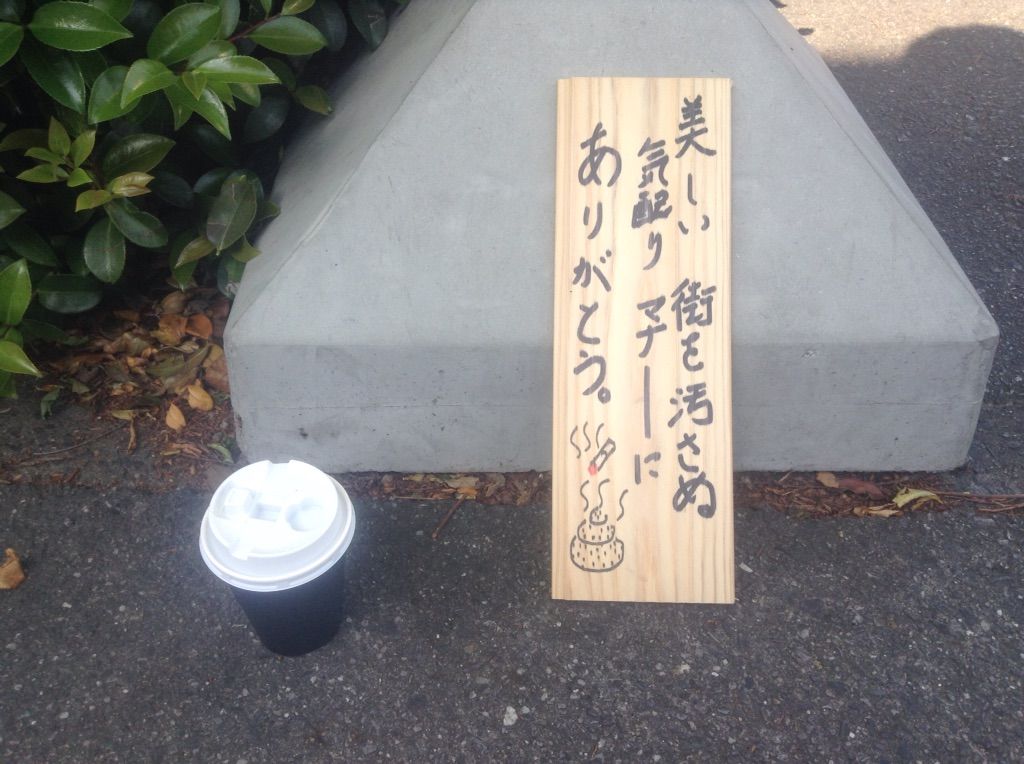 美しい街を汚さぬ
気配りマナーに
ありがとう。